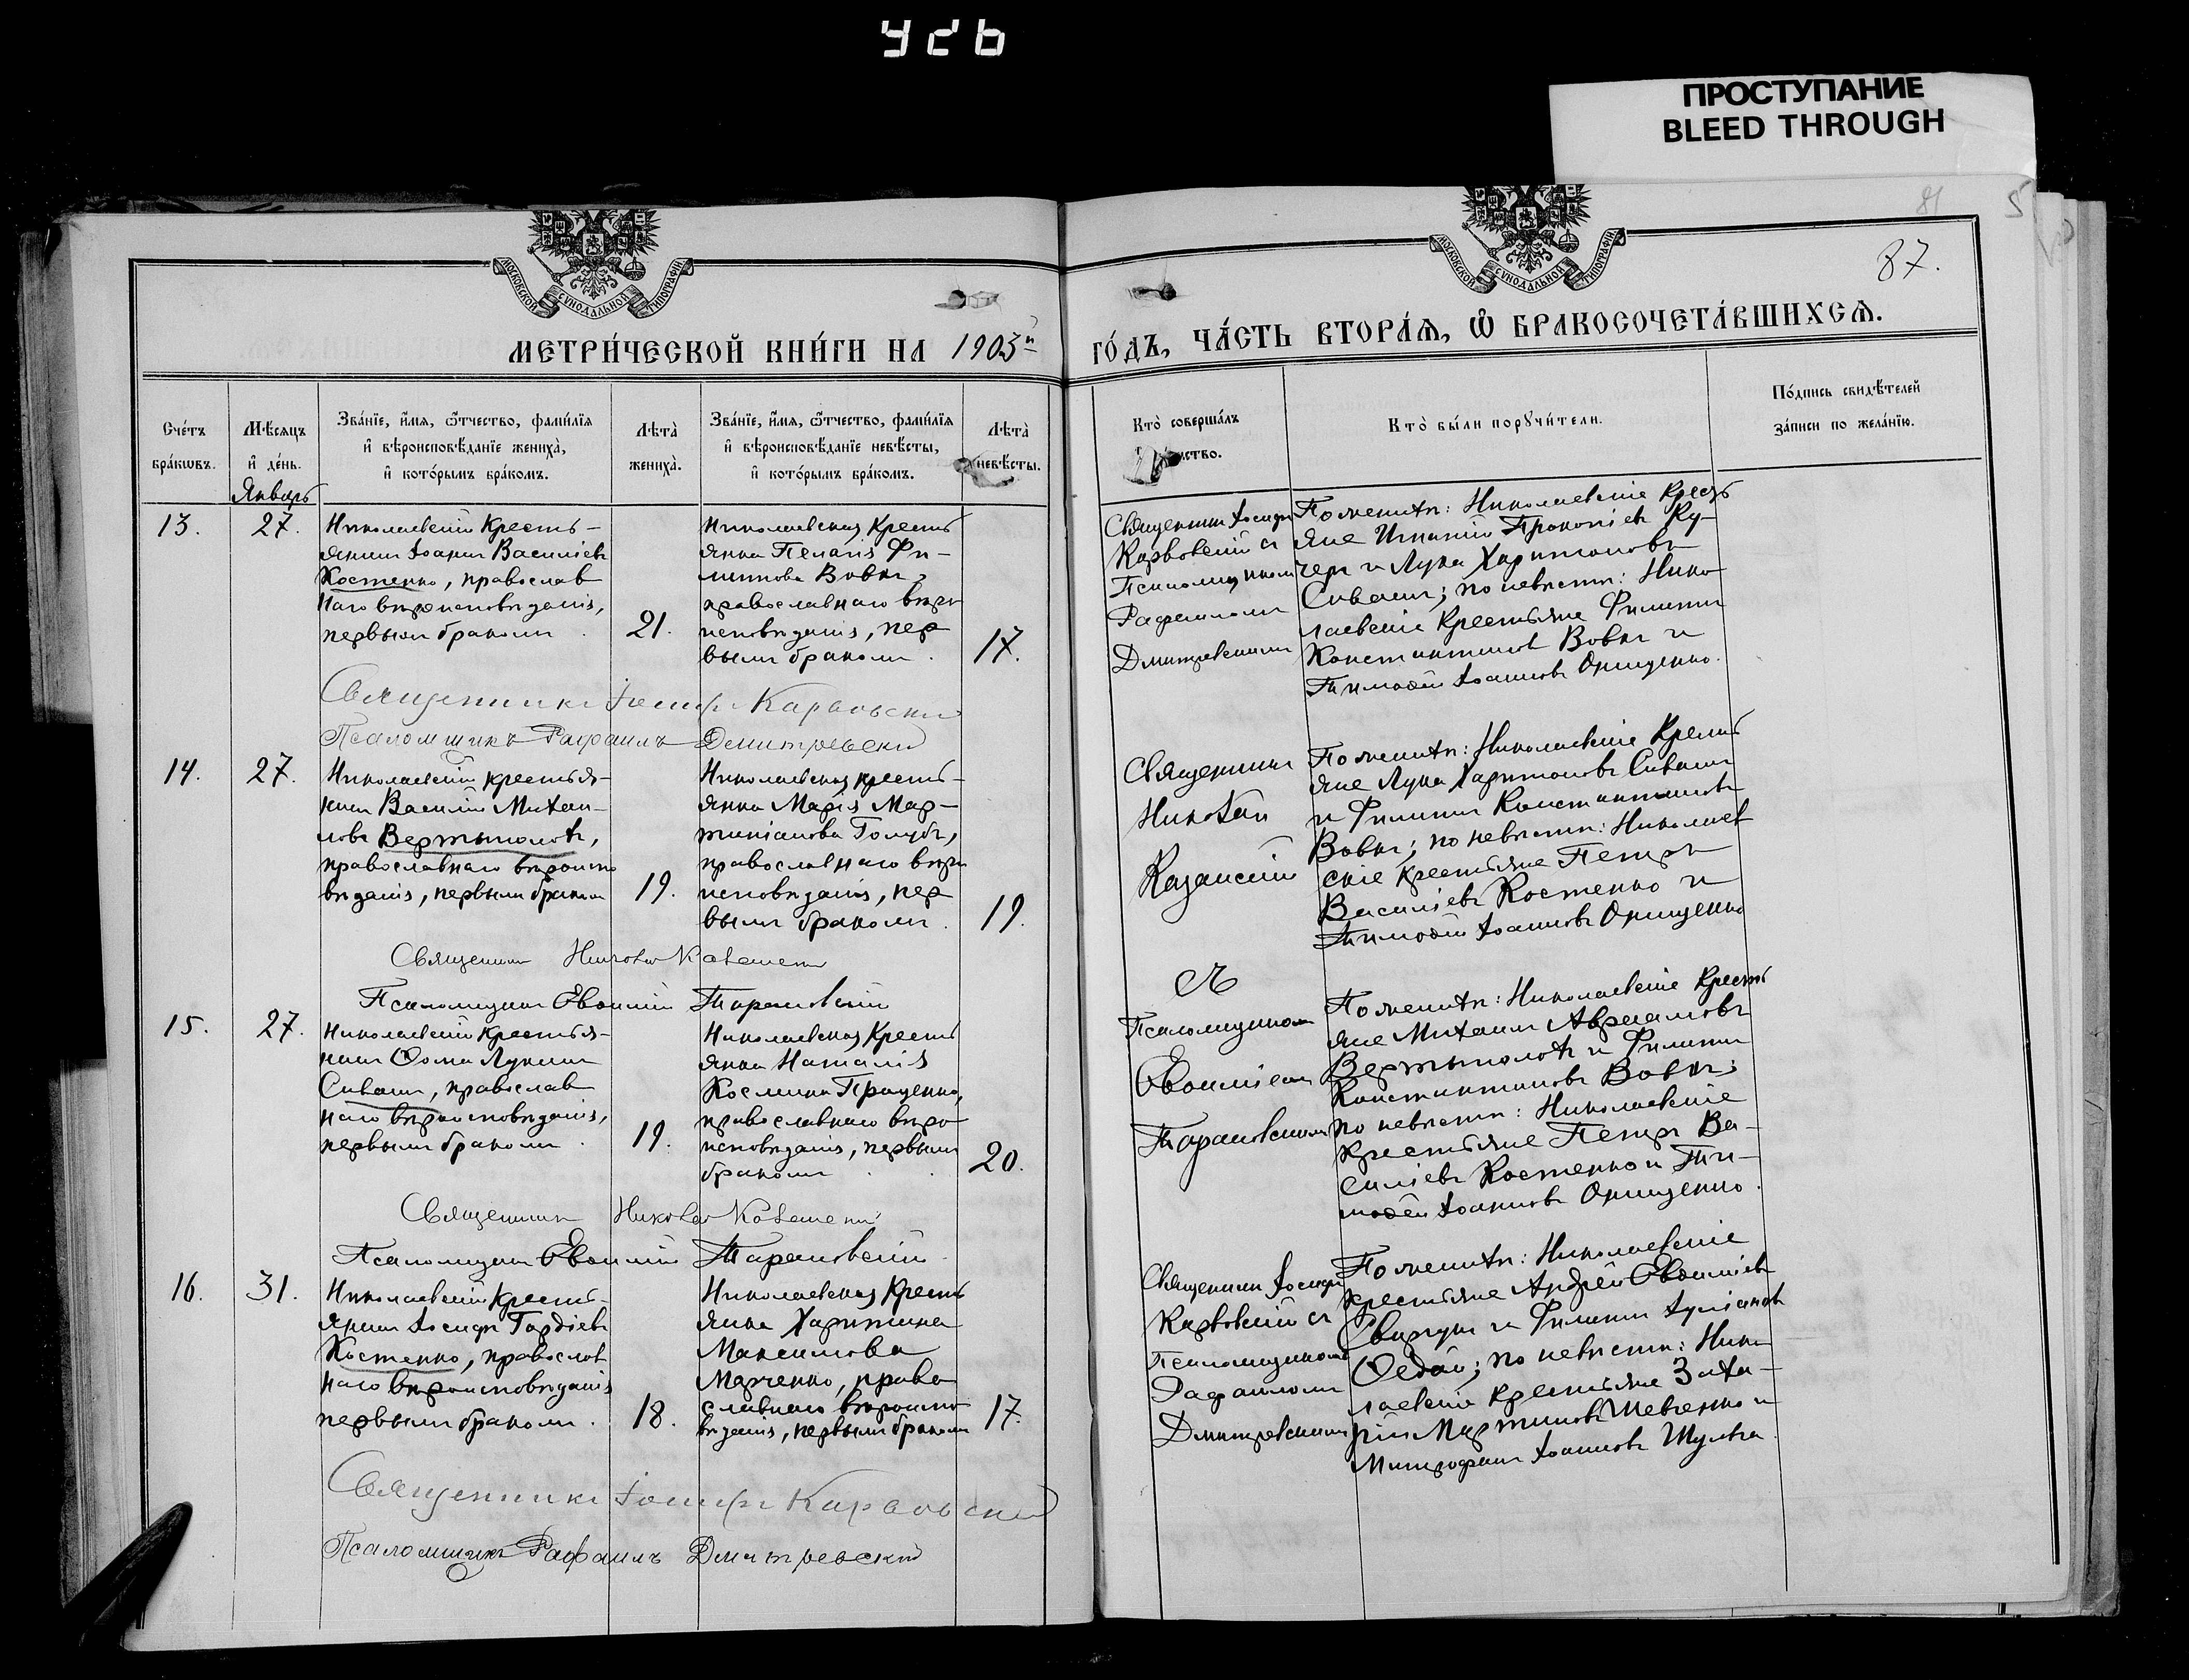 ПРОСТУПАНИЕ
BLEED THROUGH
81
87.
МОСКОВСКОЙ СУНОДАЛЬНОЙ ТИПОГРАФІИ
МОСКОВСКОЙ СУНОДАЛЬНОЙ ТИПОГРАФІИ
МЕТРИ́ЧЕСКОЙ КНИ́ГИ НА 1903й
ГО́ДЪ, ЧА́СТЬ ВТОРА́Я, Ѽ БРАКОСОЧЕТА́ВШИХСЯ.
Сче́тъ бра́кωвъ.
Мѣ́сяцъ и҆ де́нь.
Зва́нїе, и҆́мя, ѻ҆́тчество, фами́лїя и҆ вѣроисповѣ́данїе жениха̀, и҆ кото́рымъ бра́комъ.
Лѣта̀ жениха̀.
Зва́нїе, и҆́мя, ѻ҆́тчество, фами́лїя и҆ вѣроисповѣ́данїе невѣ́сты, и҆ кото́рымъ бра́комъ.
Лѣта̀ невѣ́сты.
Кто̀ соверша́лъ
Кто̀ бы́ли порꙋчи́тели.
По́дпись свидѣ́телей за́писи по жела́нїю.
Январь
13.
27.
Николаевскій кресть-
янинъ Іоаннъ Василіевъ
Костенко, православ
наго вѣроисповѣданія,
первымъ бракомъ.
21.
Николаевская кресть
янка Пелагія Фи-
липпова Вовкъ,
православнаго вѣро
исповѣданія, пер
вымъ бракомъ.
17.
Священникъ Іосифъ
Карвовскій съ
Псаломщикомъ
Рафаиломъ
Дмитревскимъ
По женихѣ: Николаевскіе кресть
яне Игнатій Прокопіевъ Ку-
черъ и Лука Харитоновъ
Сивашъ; по невѣстѣ: Нико
лаевскіе крестьяне Филиппъ
Константиновъ Вовкъ и
Тимоѳей Іоанновъ Онищенко.
Священникъ Іосифъ Карвовскій
Псаломщикъ Рафаилъ Дмитревскій
14.
27.
Николаевскій крестья-
нинъ Василій Михаи-
ловъ Вертыполохъ,
православнаго вѣроиспо
вѣданія, первымъ бракомъ
19.
Николаевская кресть-
янка Марія Мар-
тиніанова Голубъ,
православнаго вѣро
исповѣданія, пер
вымъ бракомъ.
19.
Священникъ
Николай
По женихѣ: Николаевскіе кресть
яне Лука Харитоновъ Сивашъ
и Филиппъ Константиновъ
Вовкъ; по невѣстѣ: Николаев
скіе крестьяне Петръ
Василіевъ Костенко и
Тимоѳей Іоанновъ Онищенко
Священникъ Николай
Псаломщикъ Евѳимій Тарановскій
15.
27.
Николаевскій крестья-
нинъ Ѳома Лукинъ
Сивашъ, православ
наго вѣроисповѣданія,
первымъ бракомъ.
19.
Николаевская кресть
янка Наталія
Космина Проценко,
православнаго вѣро
исповѣданія, первымъ
бракомъ.
20.
съ
Псаломщикомъ
Евѳиміемъ
Тарановскимъ
По женихѣ: Николаевскіе кресть
яне Михаилъ Авраамовъ
Вертыполохъ и Филиппъ
Константиновъ Вовкъ;
по невѣстѣ: Николаевскіе
крестьяне Петръ Ва-
силіевъ Костенко и Ти-
моѳей Іоанновъ Онищенко.
Священникъ Николай
Псаломщикъ Евѳимій Тарановскій
16.
31.
Николаевскій кресть-
янинъ Іосифъ Гордіевъ
Костенко, православ
наго вѣроисповѣданія
первымъ бракомъ.
18.
Николаевская кресть
янка Харитина
Максимова
Марченко, право
славнаго вѣроиспо
вѣданія, первымъ бракомъ
17.
Священникъ Іосифъ
Карвовскій съ
Псаломщикомъ
Рафаиломъ
Дмитревскимъ
По женихѣ: Николаевскіе
крестьяне Андрей Евѳиміевъ
и Филиппъ Іуліановъ
по невѣстѣ: Нико
лаевскіе крестьяне Заха-
рій Мартиновъ Шевченко и
Митрофанъ Іоанновъ Шульга.
Священникъ Іосифъ Карвовскій
Псаломщикъ Рафаилъ Дмитревскій